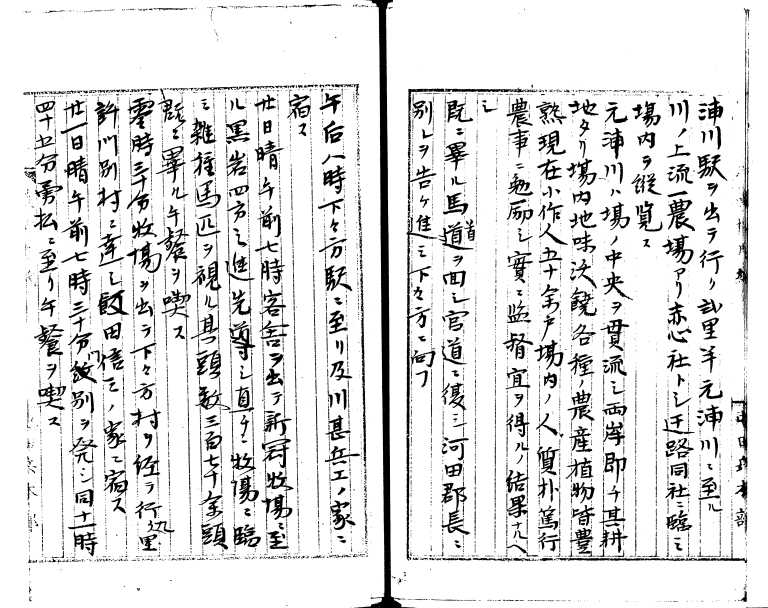 浦川駅ヲ出テ行ク弐里半元浦川ニ至ル
川ノ上流一農場アリ赤心社トシ迂路同社ニ臨ミ
場内ヲ縦覧ス
元浦川ハ場ノ中央ヲ貫流シ両岸即チ其耕
地タリ場内地味沃饒各種ノ農産植物皆豊
熟現在小作人五十余戸場内ノ人質朴篤行
農事ニ勉励シ実ニ監督宜ヲ得ルノ結果ナルヘ
シ
既ニ畢ル馬首道ヲ回シ官道ニ復シ河田郡長ニ
別レヲ告ケ進ミ下々方ニ向フ
午后八時下々方駅ニ至リ及川甚兵エノ家ニ
宿ス
廿日晴午前七時客舎ヲ出テ新冠牧場ニ至
ル黒岩四方之進先導シ直チニ牧場ニ臨
ミ雑種馬匹ヲ視ル其頭数三百七十余頭
既ニ畢ル午餐ヲ喫ス
零時三十分牧場ヲ出テ下々方村ヲ経テ行九里
許川別村ニ達シ飯田信三ノ家ニ宿ス
廿一日晴午前七時三十分紋別ヲ発シ同十一時
四十五分勇払ニ至リ午餐ヲ喫ス